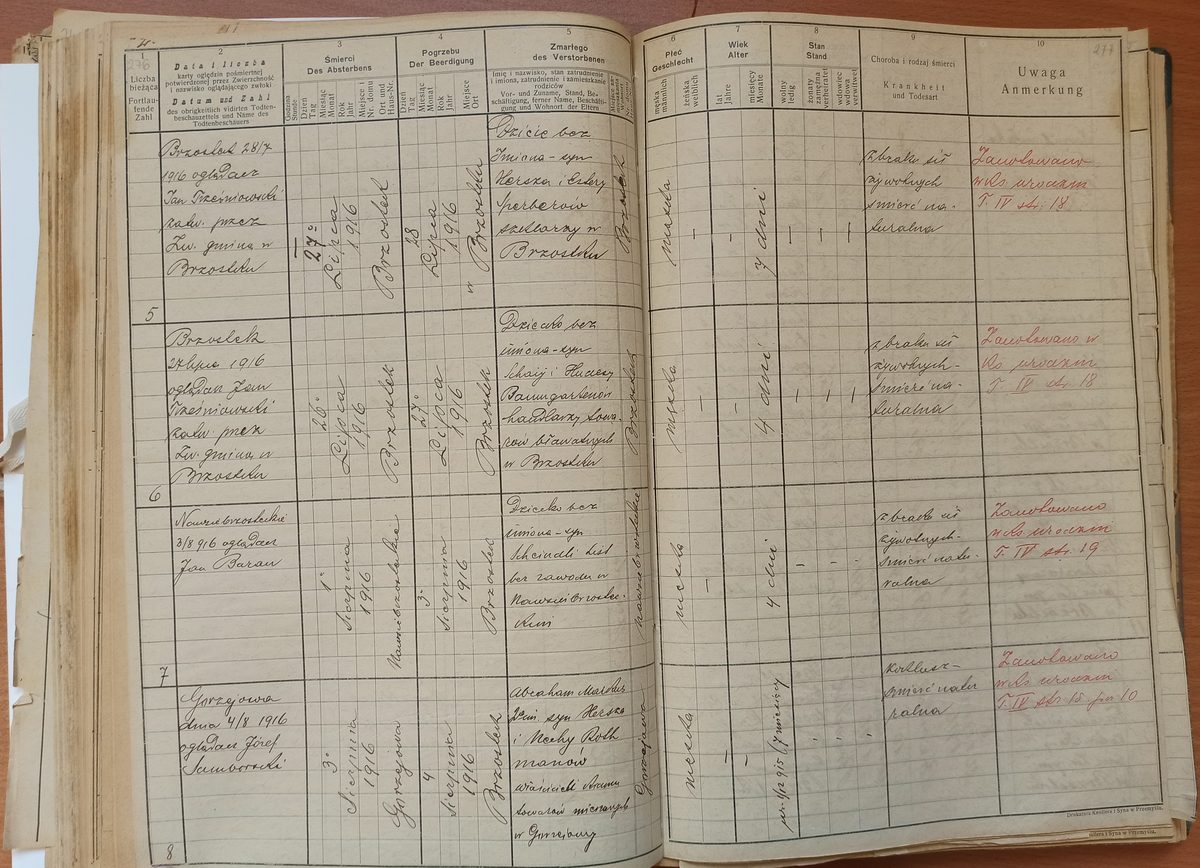 276
1
Liczba
bieżąca
Fortlau-
fende
Zahl
2
Data i liczba
karty oględzin pośmiertnej
potwierdzonej przez Zwierzchność
i nazwisko oglądającego zwłoki
Datum und Zahl
des obrigkeitlich vidirten Todten-
beschauzettels und Name des
Todtenbeschauers
3
Śmierci
Des Absterbens
Godzina
Stunde
Dzień
Tag
Miesiąc
Monat
Rok
Jahr
Miejsce
Nr. domu
Ort und
Haus-Nr.
4
Pogrzebu
Der Beerdigung
Dzień
Tag
Miesiąc
Monat
Rok
Jahr
Miejsce
Ort
5
Zmarłego
des Verstorbenen
Imię i nazwisko, stan zatrudnienie
i imiona, zatrudnienie i zamieszkanie
rodziców
Vor- und Zuname, Stand, Be-
schäftigung, ferner Name, Beschäfti-
gung und Wohnort der Eltern
6
Płeć
Geschlecht
męska
männlich
żeńska
weiblich
7
Wiek
Alter
lat
Jahre
miesięcy
Monate
8
Stan
Stand
wolny
ledig
żonaty
zamężna
verheiratet
wdowiec
wdowa
verwitwet
Choroba i rodzaj śmierci
Krankheit
und Todesart
10
Uwaga
Anmerkung
277
Brzostek 28/7
1916 oglądacz
Jan Trześniowski
zatw. przez
Zw. gmina w
Brzostku
27
Lipca
1916
Brzostek
28
Lipca
1916
w Brzostku
Dziecię bez
Imiona - syn
Hersza i Estery
szklarzy w
Brzostku
Brzostek
męska
7 dni
z braku sił
żywotnych
śmierć na-
turalna
Zanotowano
w Ks. urodzin
T. IV str. 18
5
Brzostek
27 lipca 1916
oglądacz Jan
Trześniowski
zatw. przez
Zw. gmina w
Brzostku
26
Lipca
1916
Brzostek
27
Lipca
1916
Brzostek
Dziecko bez
imiona - syn
Baumgartenów
handlarzy towa-
rów bławatnych
w Brzostku
Brzostek
męska
4 dni
z braku sił
żywotnych -
śmierć na-
turalna
Zanotowano w
Ks urodzin
T. IV str. 18
6
Nawsie brzosteckie
3/8 916 oglądacz
Jan Baran
1
Sierpnia
1916
Nawsie brzosteckie
3
Sierpnia
1916
Brzostek
Dziecko bez
imiona - syn
Scheindli List
bez zawodu w
Nawsiu brzostec-
kiem
męska
4 dni
z braku sił
żywotnych -
śmierć natu-
ralna
Zanotowano
w Ks. urodzin
T. IV str. 19
7
Gorzejowa
dnia 4/8 1916
oglądacz Józef
Samborski
3
Sierpnia
1916
Gorzejowa
4
Sierpnia
1916
Brzostek
Abraham
syn Hersza
i Nechy Roth
manów
właścicieli
towarów mieszanych
w Gorzejowej
Gorzejowa
męska
śmierć natu
ralna
Zanotowano
w Ks. urodzin
T. IV str. 15 poz 10
8
Drukarnia Knollera i Syna w Przemyślu.